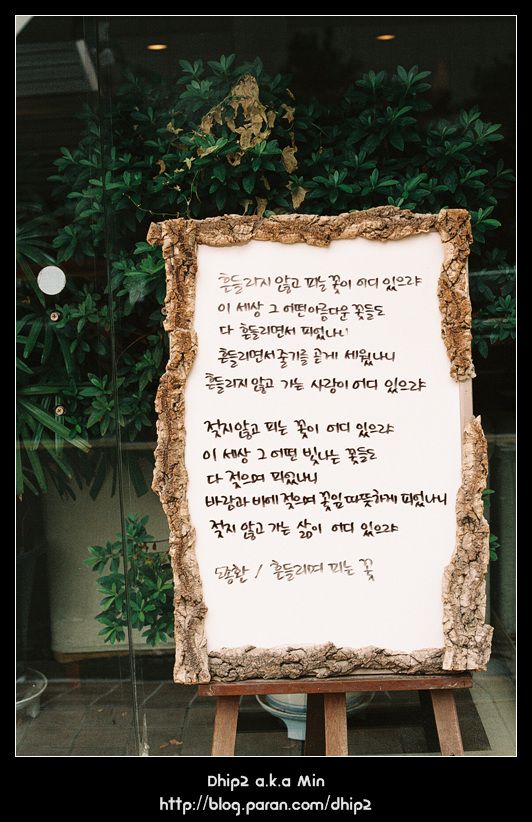 흔들리지 않고 피는 꽃이 어디 있으랴
이 세상 그 어떤 아름다운 꽃들도
다 흔들리면서 피었나니
흔들리면서 줄기를 곧게 세웠나니
흔들리지 않고 가는 사랑이 어디 있으랴
젖지 않고 피는 꽃이 어디 있으랴
이 세상 그 어떤 빛나는 꽃들도
다 젖으며 피었나니
바람과 비에 젖으며 꽃잎 따뜻하게 피웠나니
젖지 않고 가는 삶이 어디 있으랴
도종환 / 흔들리며 피는 꽃
Dhip2 a.k.a Min
http://blog.paran.com/dhip2